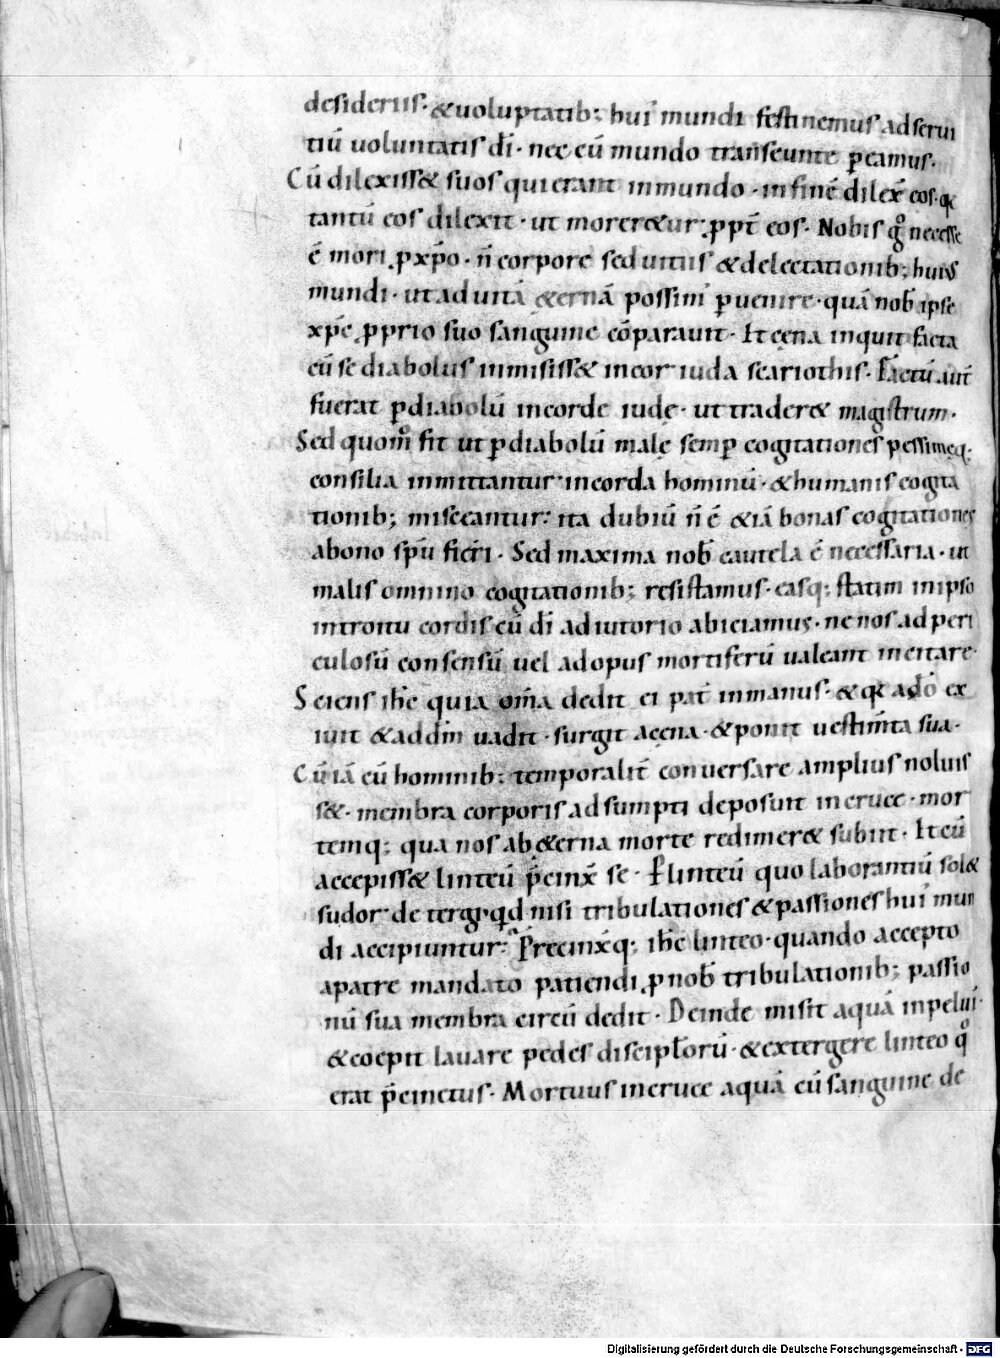 desideriis· &uoluptatib; hui᾽ mundi festinemus adserui
tiū uoluntatis dī· nec cū mundo transeunte ꝑeamus·
Cū dilexiss& suos qui erant inmundo· infinē dilex̄ eos· q̄
tantū eos dilexit· ut morer&ur ꝓpt̄ eos· Nobis gͦ necesse
ē mori ꝓ xp̄o· n̄ corpore sed uitiis &delectationib; huiꝰ
mundi· ut ad uitā &ernā possim᾽ ꝑuenire· quā nob̄ ipse
xp̄c ꝓprio suo sanguine cōparauit· It cęna inquit facta
cū se diabolus inmisiss& incor iuda scariothis· Factū aut̄
fuerat ꝑdiabolū incorde iudę· ut trader& magistrum·
Sed quom̊ fit ut ꝑdiabolū malę semꝑ cogitationes pessimęq;
consilia inmittantur incorda hominū· &humanis cogita
tionib; misceantur: ita dubiū n̄ ē &iā bonas cogitationes
abono sp̄u fieri· Sed maxima nob̄ cautela ē necessaria· ut
malis omnino cogitationib; resistamus· easq; statim inipso
introitu cordis cū dī adiutorio abiciamus· ne nos ad peri
culosū consensū uel adopus mortiferū ualeant incitare·
Sciens ih̄c quia om̄a dedit ei pat̄ inmanus· & q̄ adō ex
iuit &addm̄ uadit· surgit acęna· &ponit uestim̄ta sua·
Cū iā cū hominib; temporalit̄ conuersare amplius noluis
s&· membra corporis adsumpti deposuit incruce· mor
temq; qua nos ab&erna morte redimer& subiit· It cū
accepiss& linteū p̄cinx̄ se· ꝑ linteū quo laborantiū sol&
sudor de tergi· qd nisi tribulationes &passiones hui᾽ mun
di accipiuntur: Precinx̄q; ih̄c linteo· quando accepto
apatre mandato patiendi ꝓ nob̄ tribulationib; passio
nū sua membra circū dedit· Deinde misit aquā inpeluī·
&coepit lauare pedes discipl̄orū· &extergere linteo qͦ
erat p̄cinctus· Mortuus incruce aquā cū sanguine de
Digitalisierung gefördert durch die Deutsche Forschungsgemeinschaft - DFG